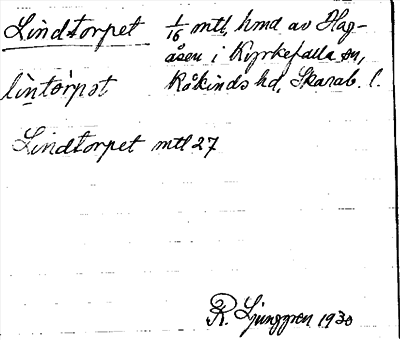 Lindtorpet 1/16 mtl, hmd av Hag-
åsen i Kyrkefalla sn,
lìntòrpət Kåkinds hd, Skarab. l.
Lindtorpet mtl 27
R. Ljunggren 1930